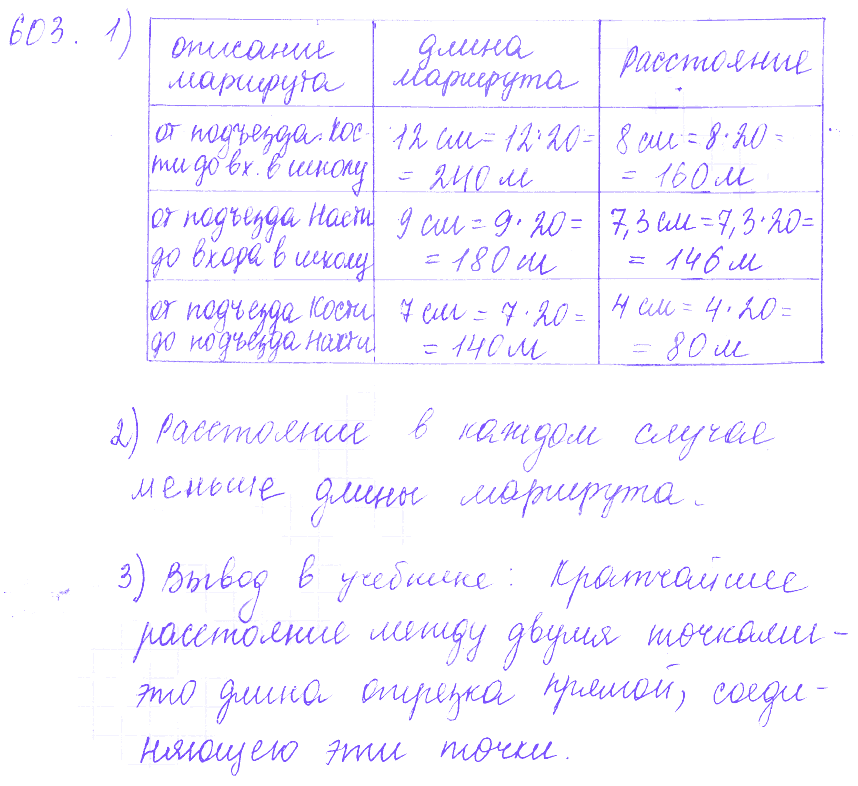 603. 1)
описание маршрута | длина маршрута | Расстояние
от подъезда Кос-
ти до вх. в школу | 12 см = 12·20 =
= 240 м | 8 см = 8·20 =
= 160 м
от подъезда Насти
до входа в школу | 9 см = 9·20 =
= 180 м | 7,3 см = 7,3·20 =
= 146 м
от подъезда Кости
до подъезда Насти | 7 см = 7·20 =
= 140 м | 4 см = 4·20 =
= 80 м
2) Расстояние в каждом случае
меньше длины маршрута.
3) Вывод в учебнике: Кратчайшее
расстояние между двумя точками -
это длина отрезка прямой, соеди-
няющего эти точки.